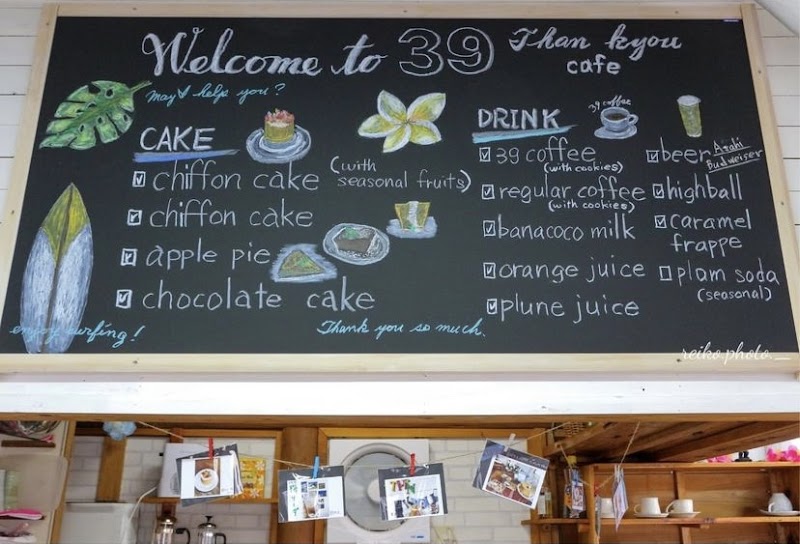 Welcome to 39 Than kyou
cafe
may I help you?
CAKE
chiffon cake (with
seasonal fruits)
chiffon cake
apple pie
chocolate cake
enjoy surfing!
Thank you so much.
DRINK
39 coffee
39 coffee
(with cookies)
regular coffee
(with cookies)
banacoco milk
orange juice
plune juice
beer Asahi
Budweiser
highball
caramel
frappe
plam soda
(seasonal)
reiko.photo__